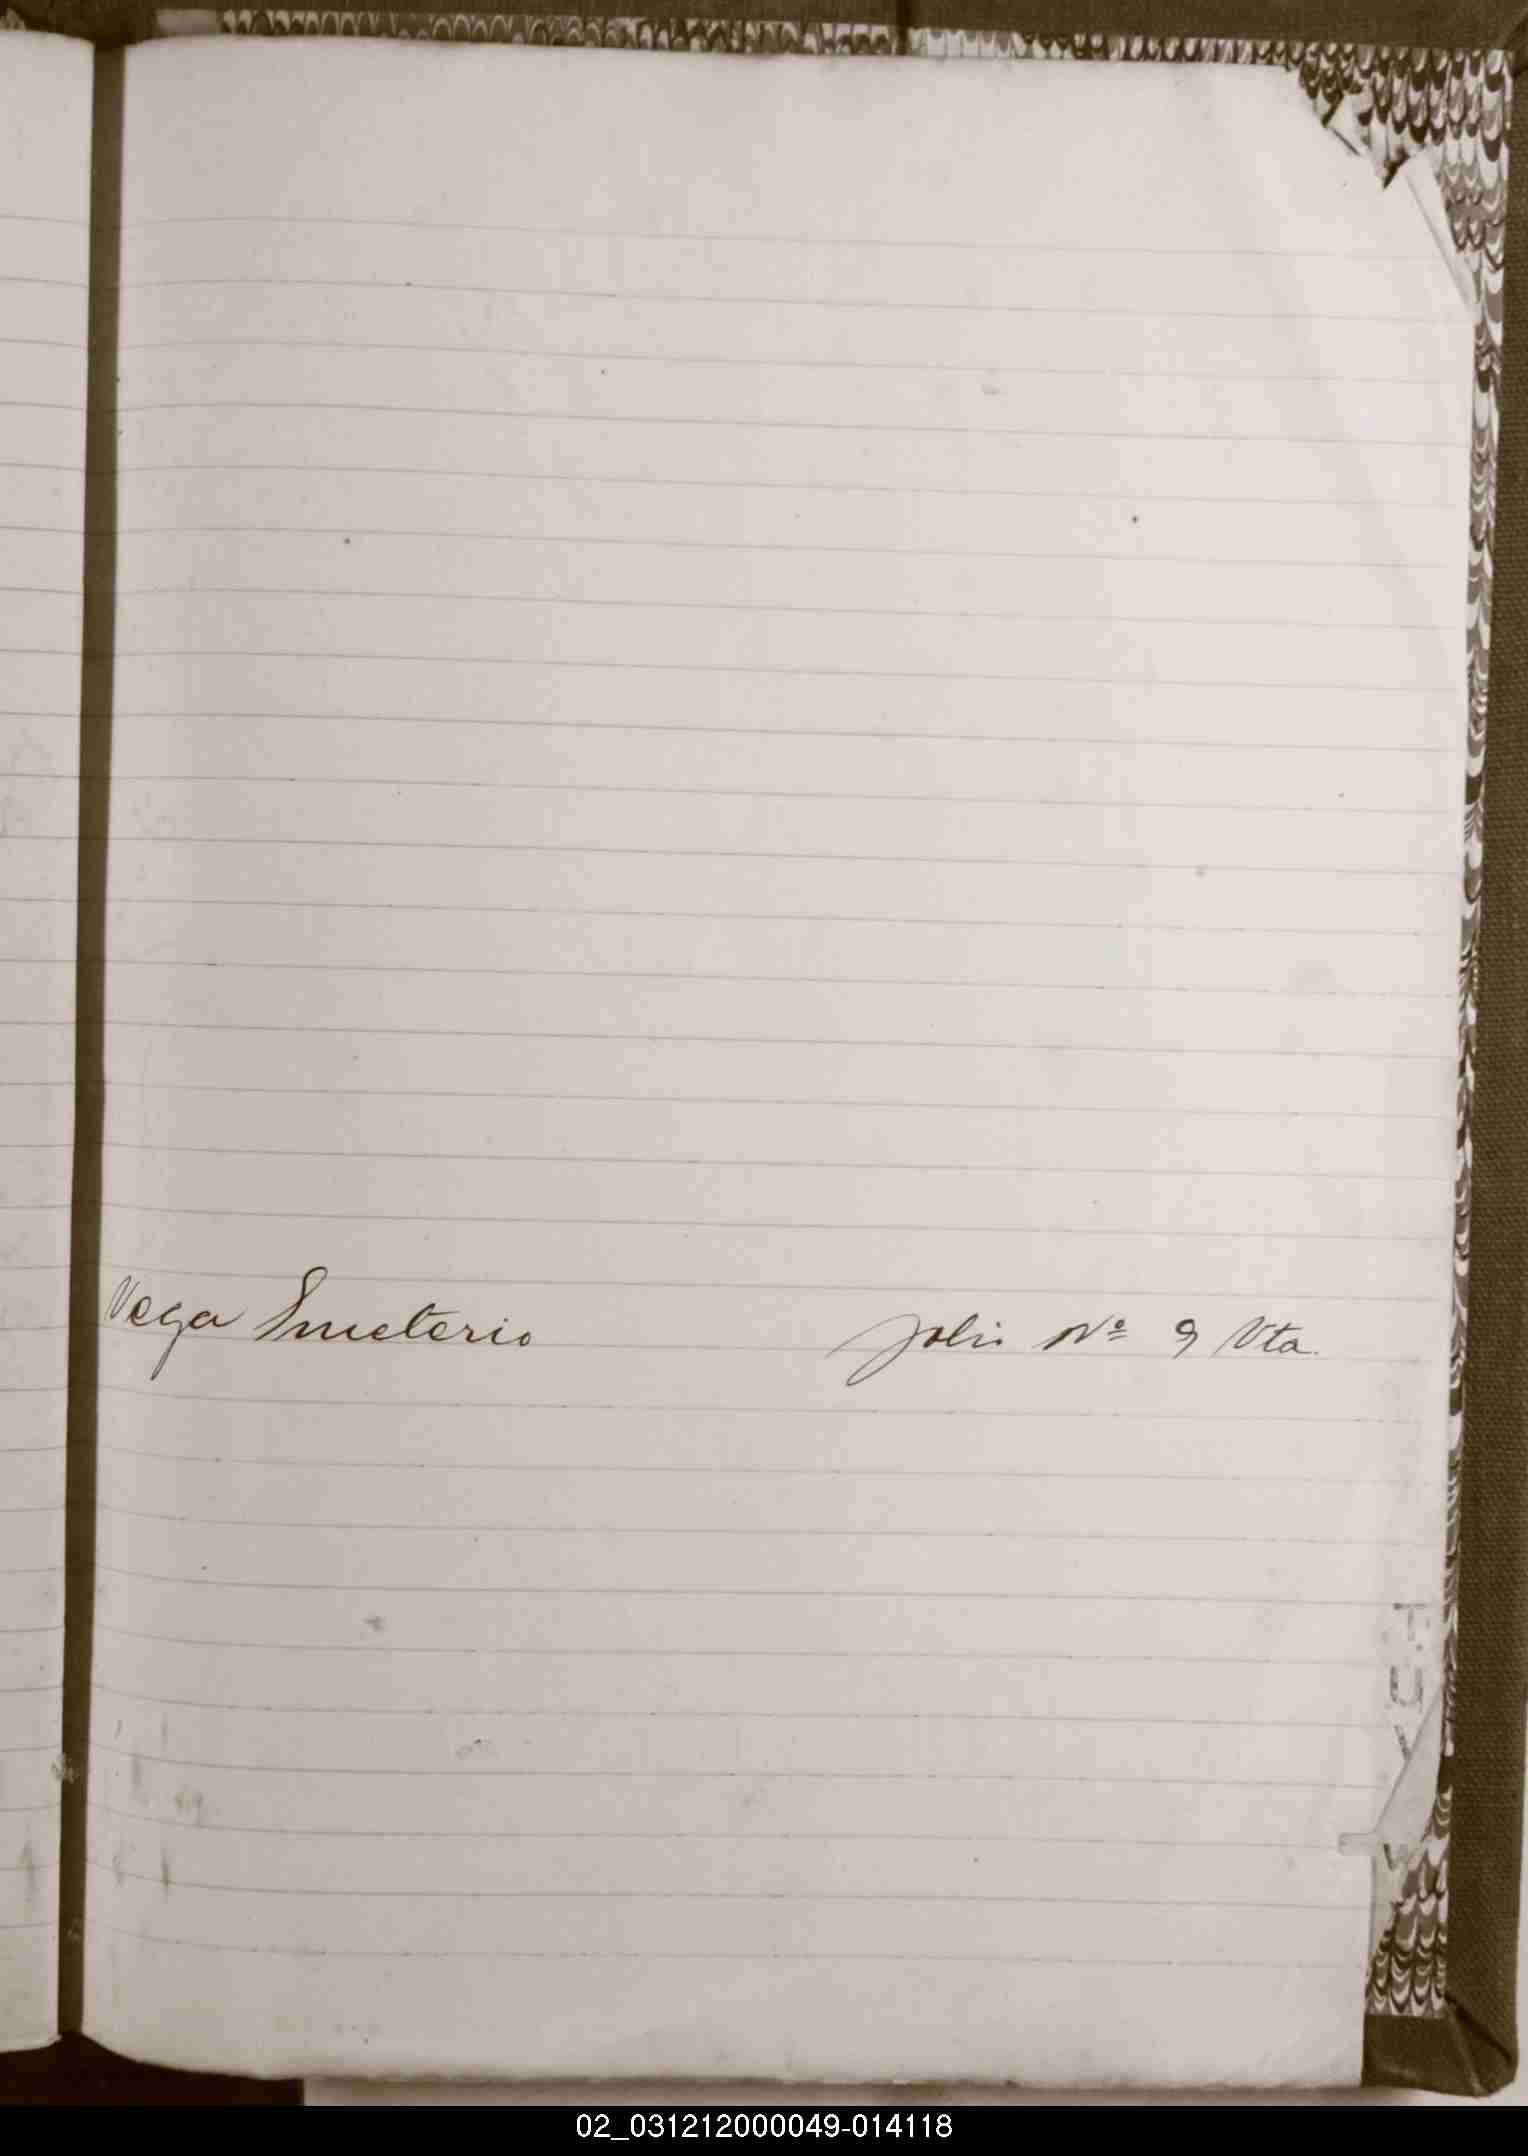 Vega Emeterio folio Nº 9 Vta.
02_031212000049-014118